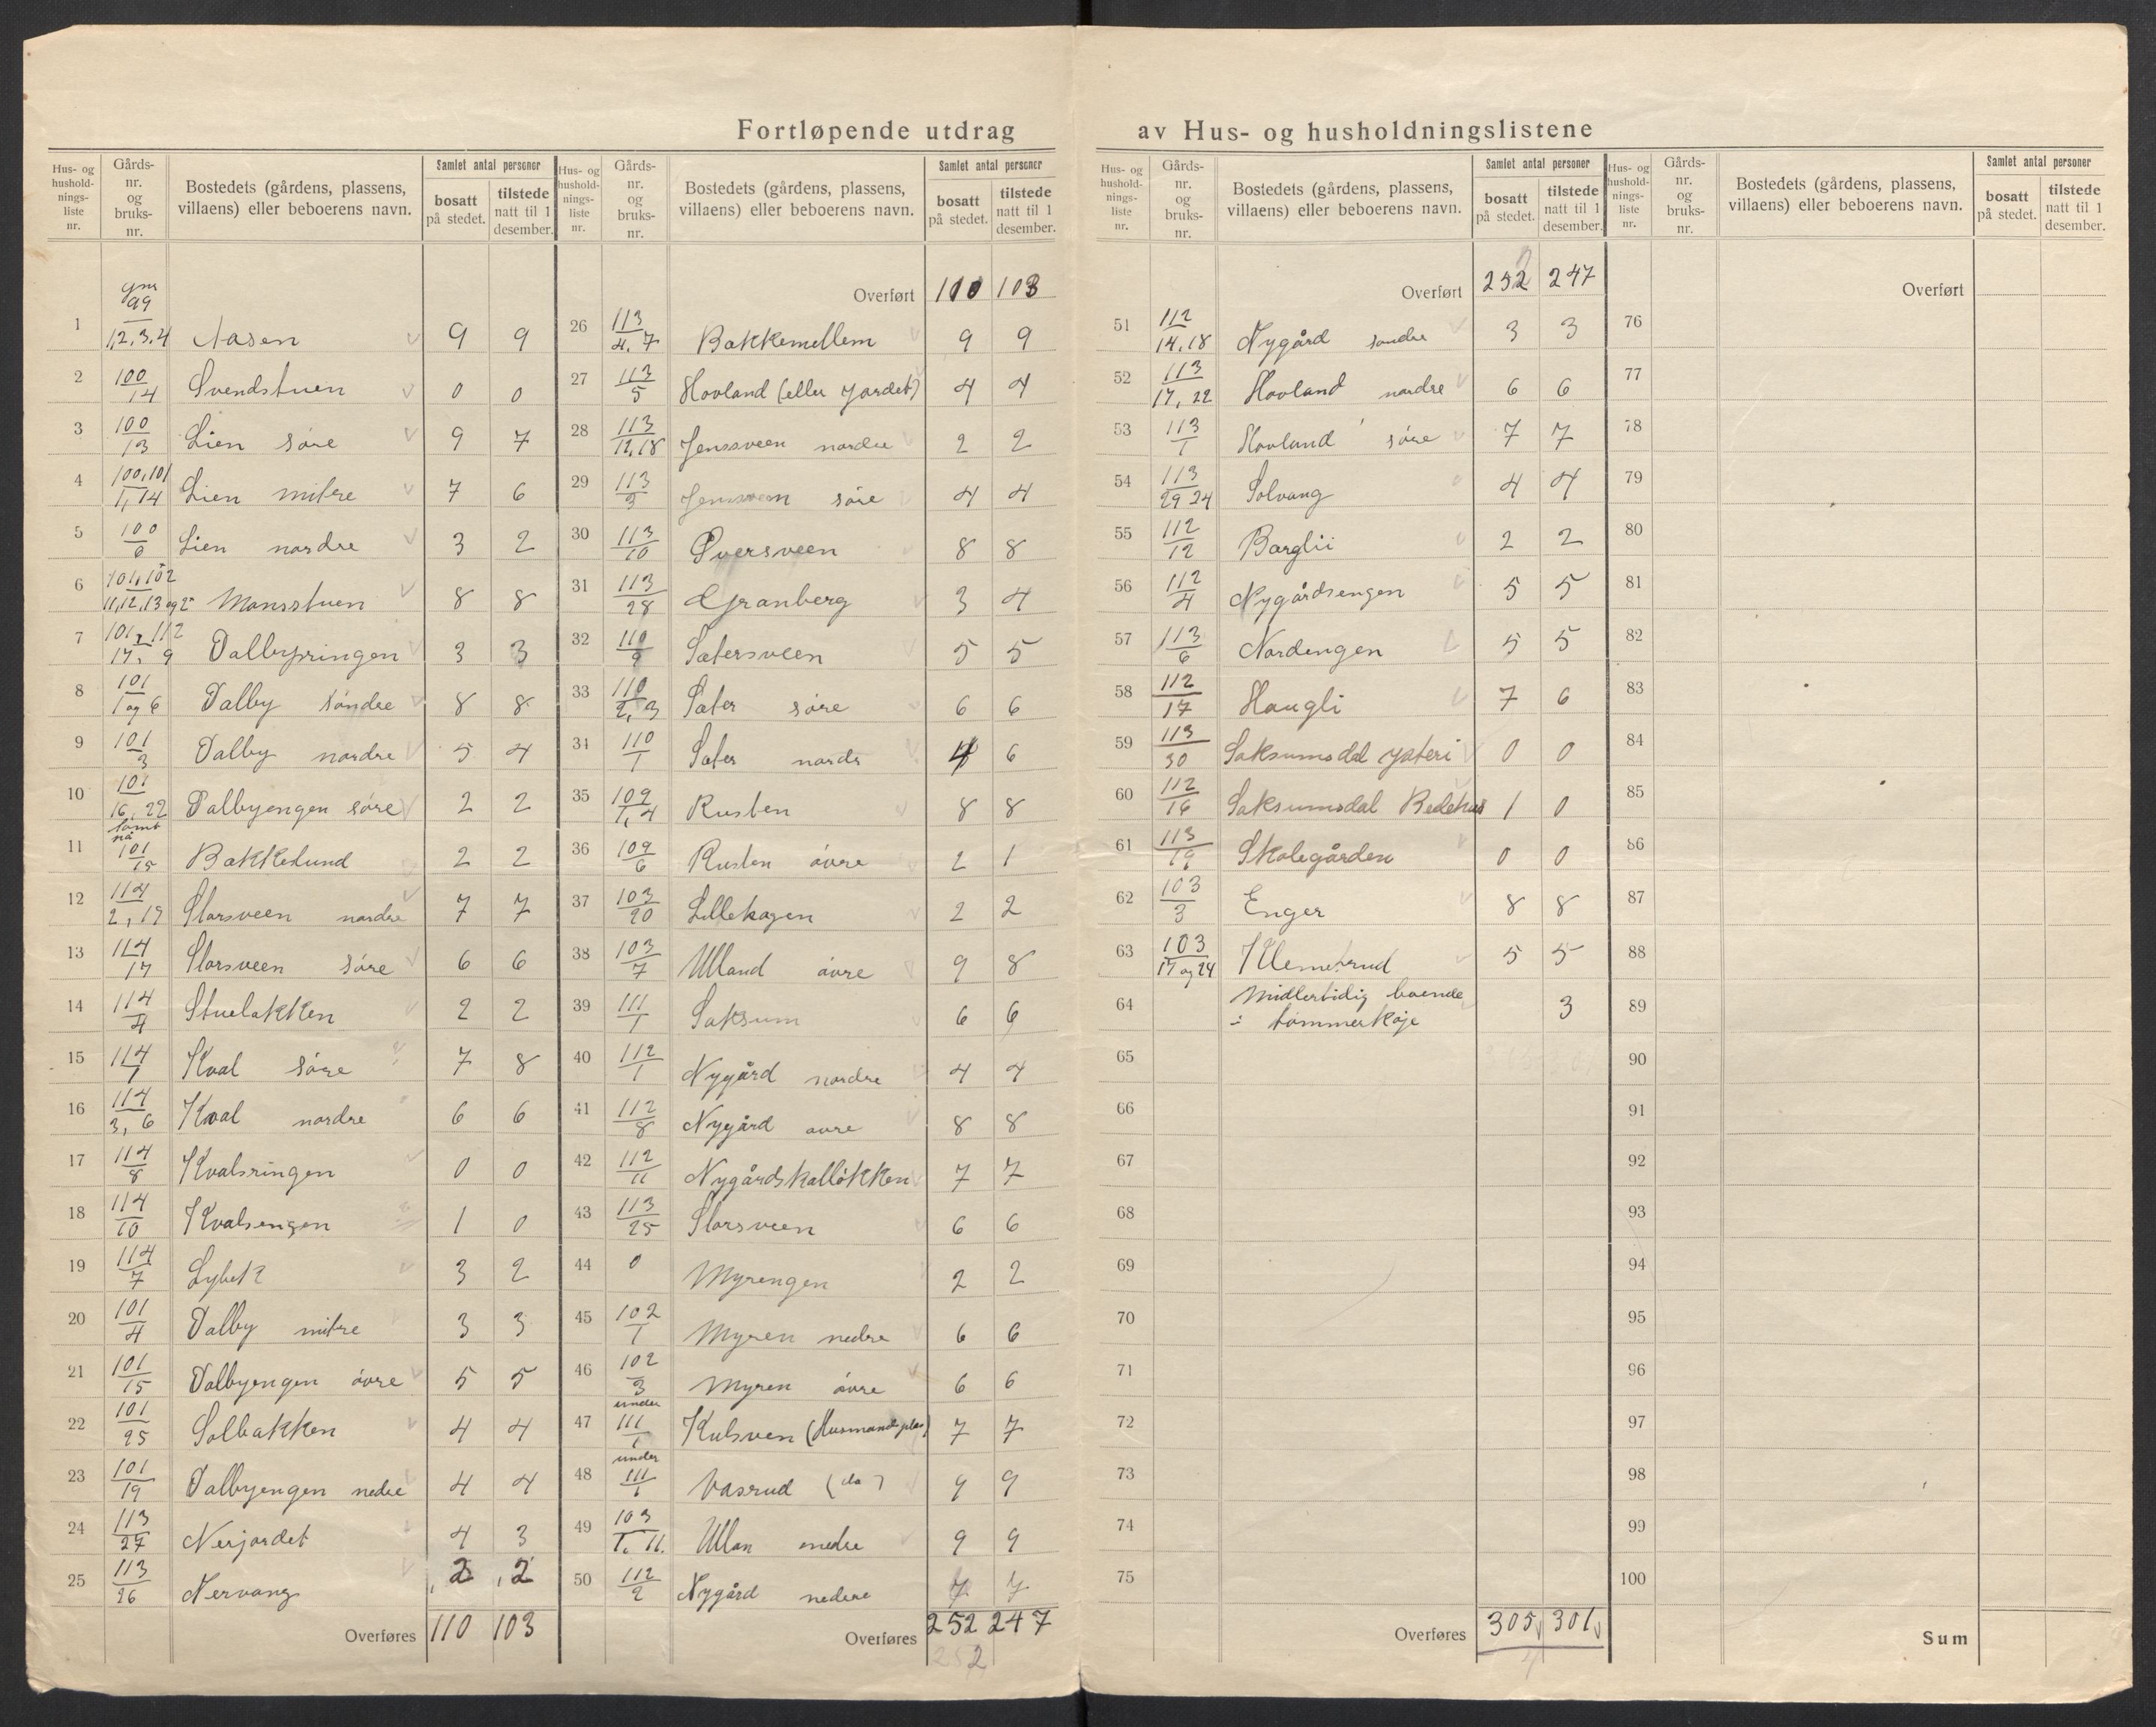 Fortløpende utdrag av Hus- og husholdningslistene
Hus- og husholdnings-liste nr. | Gårds-nr. og bruks-nr. | Bostedets (gårdens, plassens, villaens) eller beboerens navn. | Samlet antal personer bosatt på stedet. | tilstede natt til 1 desember.
1 gnr 99/1,2,3,4 Aasen 9 9
2 100/14 Svendstuen 0 0
3 100/13 Lien søre 9 7
4 100,101/1,14 Lien mitre 7 6
5 100/6 Lien nordre 3 2
6 101,102/11,12,13 og 2 Monsstuen 8 8
7 101, 112/17, 9 Dalbyringen 3 3
8 101/1 og 6 Dalby søndre 8 8
9 101/3 Dalby nordre 5 4
10 101/16, 22 Dalbyengen søre 2 2
11 101/15 Bakkelund 2 2
12 114/2, 19 Storsveen nordre 7 7
13 114/17 Storsveen søre 6 6
14 114/4 Stueløkken 2 2
15 114/1 Kval søre 7 8
16 114/3, 6 Kval nordre 6 6
17 114/8 Kvalsringen 0 0
18 114/10 Kvalsengen 1 0
19 114/7 Lybek 3 2
20 101/4 Dalby mitre 3 3
21 101/15 Dalbyengen øvre 5 5
22 101/25 Solbakken 4 4
23 101/19 Dalbyengen nedre 4 4
24 113/27 Nerjordet 4 3
25 113/26 Nervang 2 2
Overføres 110 103
Hus- og husholdnings-liste nr. | Gårds-nr. og bruks-nr. | Bostedets (gårdens, plassens, villaens) eller beboerens navn. | Samlet antal personer bosatt på stedet. | tilstede natt til 1 desember.
Overført 110 103
26 113/4, 7 Bakkemellem 9 9
27 113/5 Hovland (eller Jordet) 4 4
28 113/12,18 Jenssveen nordre 2 2
29 113/3 Jenssveen søre 4 4
30 113/10 Oversveen 8 8
31 113/28 Granberg 3 4
32 110/9 Sætersveen 5 5
33 110/2, 3 Sæter søre 6 6
34 110/1 Sæter nordr 4 6
35 109/1, 4 Rusten 8 8
36 109/6 Rusten øvre 2 1
37 103/20 Lillehagen 2 2
38 103/7 Ulland øvre 9 8
39 111/1 Saksum 6 6
40 112/1 Nygård nordre 4 4
41 112/8 Nygård øvre 8 8
42 112/11 Nygårdskalløkken 7 7
43 113/25 Storsveen 6 6
44 0 Myrengen 2 2
45 102/1 Myren nedre 6 6
46 102/3 Myren øvre 6 6
47 under 111/1 Kulsven (Husmandsplas) 7 7
48 under 111/1 Vasrud (do) 9 9
49 103/1, 11. Ullan nedre 9 9
50 112/2 Nygård nedere 7 7
Overføres 252 247
252
Hus- og husholdnings-liste nr. | Gårds-nr. og bruks-nr. | Bostedets (gårdens, plassens, villaens) eller beboerens navn. | Samlet antal personer bosatt på stedet. | tilstede natt til 1 desember.
Overført 252 247
51 112/14,18 Nygård søndre 3 3
52 113/17, 22 Hovland nordre 6 6
53 113/1 Hovland søre 7 7
54 113/29 24 Solvang 4 4
55 112/12 Borglii 2 2
56 112/4 Nygårdsengen 5 5
57 113/6 Nordengen 5 5
58 112/17 Haugli 7 6
59 113/30 Saksumsdal ysteri 0 0
60 112/16 Saksumsdal Bedehus 1 0
61 113/19 Skolegården 0 0
62 103/3 Enger 8 8
63 103/17 og 24 Klemetsrud 5 5
64 Midlertidig boende
i tømmerkoje 3
65
66
67
68
69
70
71
72
73
74
75
Overføres 305 301
Hus- og husholdnings-liste nr. | Gårds-nr. og bruks-nr. | Bostedets (gårdens, plassens, villaens) eller beboerens navn. | Samlet antal personer bosatt på stedet. | tilstede natt til 1 desember.
Overført
76
77
78
79
80
81
82
83
84
85
86
87
88
89
90
91
92
93
94
95
96
97
98
99
100
Sum